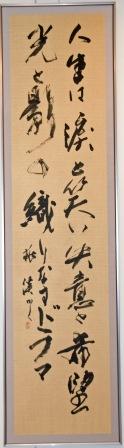 人生は涙と笑い失意と希望
光と影の織りなすドラマ